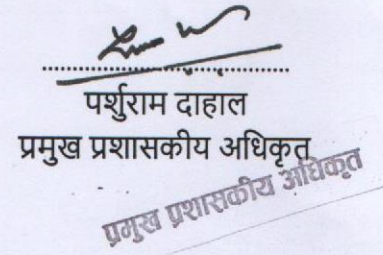 पर्शुराम दाहाल
प्रमुख प्रशासकीय अधिकृत
प्रमुख प्रशासकीय अधिकृत